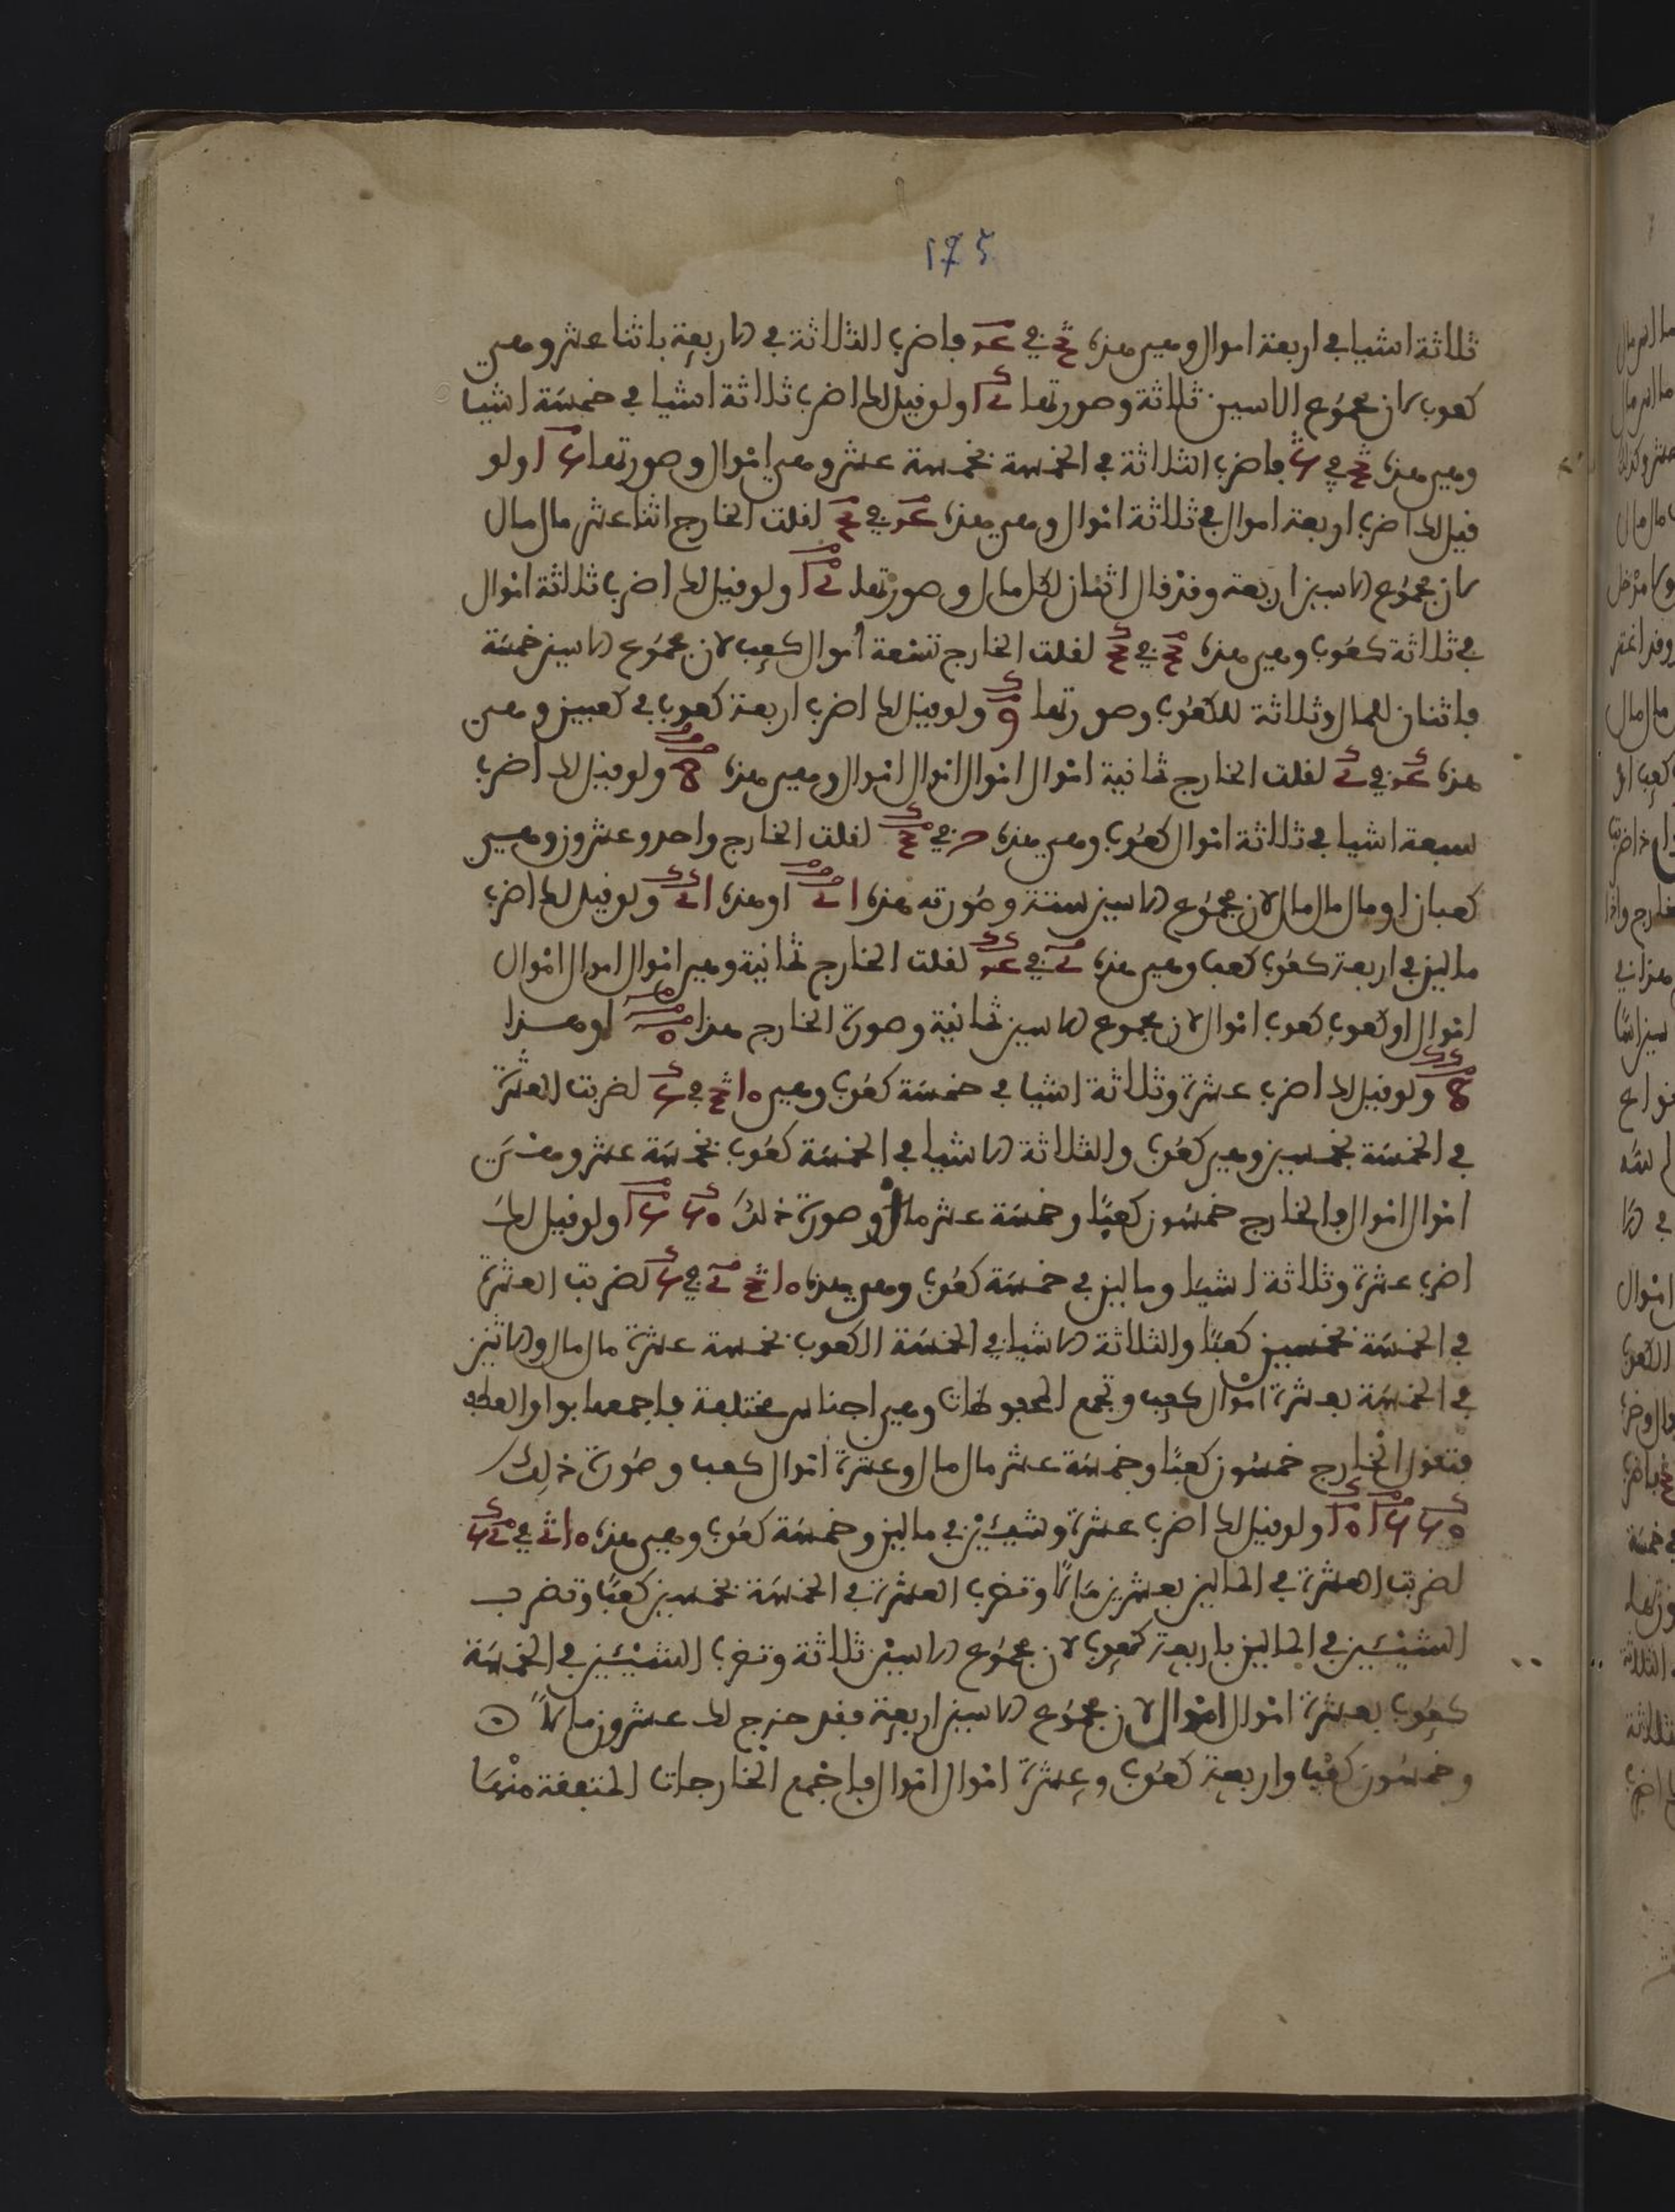 175
ثلاثة اشيا في اربعة اموال وهي هذه في فاضرب الثلاثة في الاربعة باثنا عشر وهي
كعوب لان مجموع الاسين ثلاثة وصورتها ولو قيل لك اضرب ثلاثة اشيا في خمسة اشيا
وهي هذه في فاضرب الثلاثة في الخمسة بخمسة عشر وهي اموال وصورتها ولو
قيل لك اضرب اربعة اموال في ثلاثة اموال وهي هذه في لقلت الخارج اثنا عشر مال مال
لان مجموع الاسين اربعة وقد قال اثنان لكل مال وصورتها ولو قيل لك اضرب ثلاثة اموال
في ثلاثة كعوب وهي هذه في لقلت الخارج تسعة اموال كعب لان مجموع الاسين خمسة
فاثنان للمال وثلاثة للكعوب وصورتها ولو قيل لك اضرب اربعة كعوب في كعبين وهي
هذه في لقلت الخارج ثمانية اموال اموال اموال اموال وهي هذه ولو قيل لك اضرب
سبعة اشيا في ثلاثة اموال كعوب وهي هذه في لقلت الخارج واحد وعشرون وهي
كعبان او مال مال مال لان مجموع الاسين ستة وصورته هذه او هذه ولو قيل لك اضرب
مالين في اربعة كعوب كعب وهي هذه في لقلت الخارج ثمانية وهي اموال اموال اموال
اموال او كعوب كعوب اموال لان مجموع الاسين ثمانية وصورة الخارج هذا او هذا
ولو قيل لك اضرب عشرة وثلاثة اشيا في خمسة كعوب وهي في لضربت العشرة
في الخمسة بخمسين وهي كعوب والثلاثة الاشيا في الخمسة كعوب بخمسة عشر وهي
اموال اموال فالخارج خمسون كعبا وخمسة عشر مال وصورة ذلك ولو قيل لك
اضرب عشرة وثلاثة اشيا ومالين في خمسة كعوب وهي هذه في لضربت العشرة
في الخمسة بخمسين كعبا والثلاثة الاشيا في الخمسة الكعوب بخمسة عشرة مال مال والاثنين
في الخمسة بعشرة اموال كعب وتجمع المحفوظات وهي اجناس مختلفة فاجمعها بواو العطف
فتقول الخارج خمسون كعبا وخمسة عشر مال مال وعشرة اموال كعب وصورة ذلك
ولو قيل لك اضرب عشرة وشيئين في مالين وخمسة كعوب وهي هذه في
لضربت العشرة في المالين بعشرين مالا وتضرب العشرة في الخمسة بخمسين كعبا وتضرب
الشيئين في المالين باربعة كعوب لان مجموع الاسين ثلاثة وتضرب الشيئين في الخمسة
كعوب بعشرة اموال اموال لان مجموع الاسين اربعة فقد خرج لك عشرون مالا
وخمسون كعبا واربعة كعوب وعشرة اموال اموال فاجمع الخارجات المتفقة منها